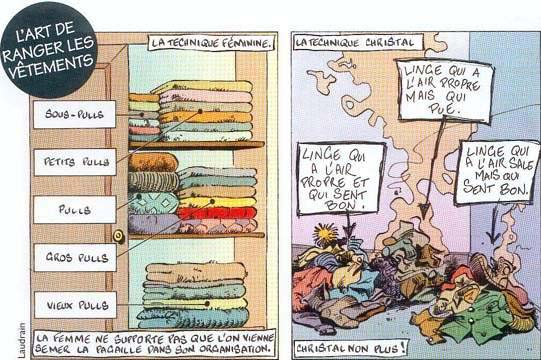 L'ART DE
RANGER LES
VÊTEMENTS
LA TECHNIQUE FÉMININE.
SOUS-PULLS
PETITS PULLS
PULLS
GROS PULLS
VIEUX PULLS
LA FEMME NE SUPPORTE PAS QUE L'ON VIENNE
SEMER LA PAGAILLE DANS SON ORGANISATION.
Laudrain
LA TECHNIQUE CHRISTAL
LINGE QUI A
L'AIR PROPRE
MAIS QUI
PUE.
LINGE QUI
A L'AIR
PROPRE ET
QUI SENT
BON.
LINGE QUI
A L'AIR SALE
MAIS QUI
SENT BON.
CHRISTAL NON PLUS!